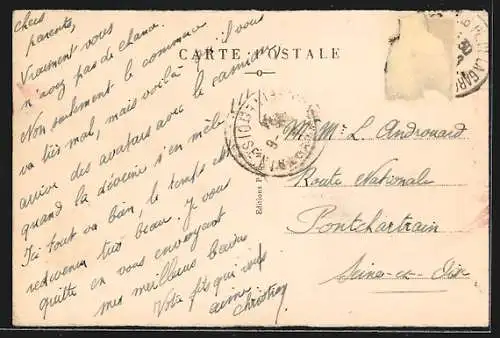 chers
parents,
Vraiment vous
n'avez pas de chance.
Non seulement le commerce
va très mal, mais voilà qu'il vous
arrive des avatars avec le camion
quand la déveine s'en mêle !!!
Ici tout va bien, le temps est
redevenu très beau. Je vous
quitte en vous envoyant
mes meilleurs baisers
Votre fils qui vous
aime
CARTE POSTALE
M. Mme L. Androuard
Route Nationale
Pontchartrain
Seine-et-Oise
Editions